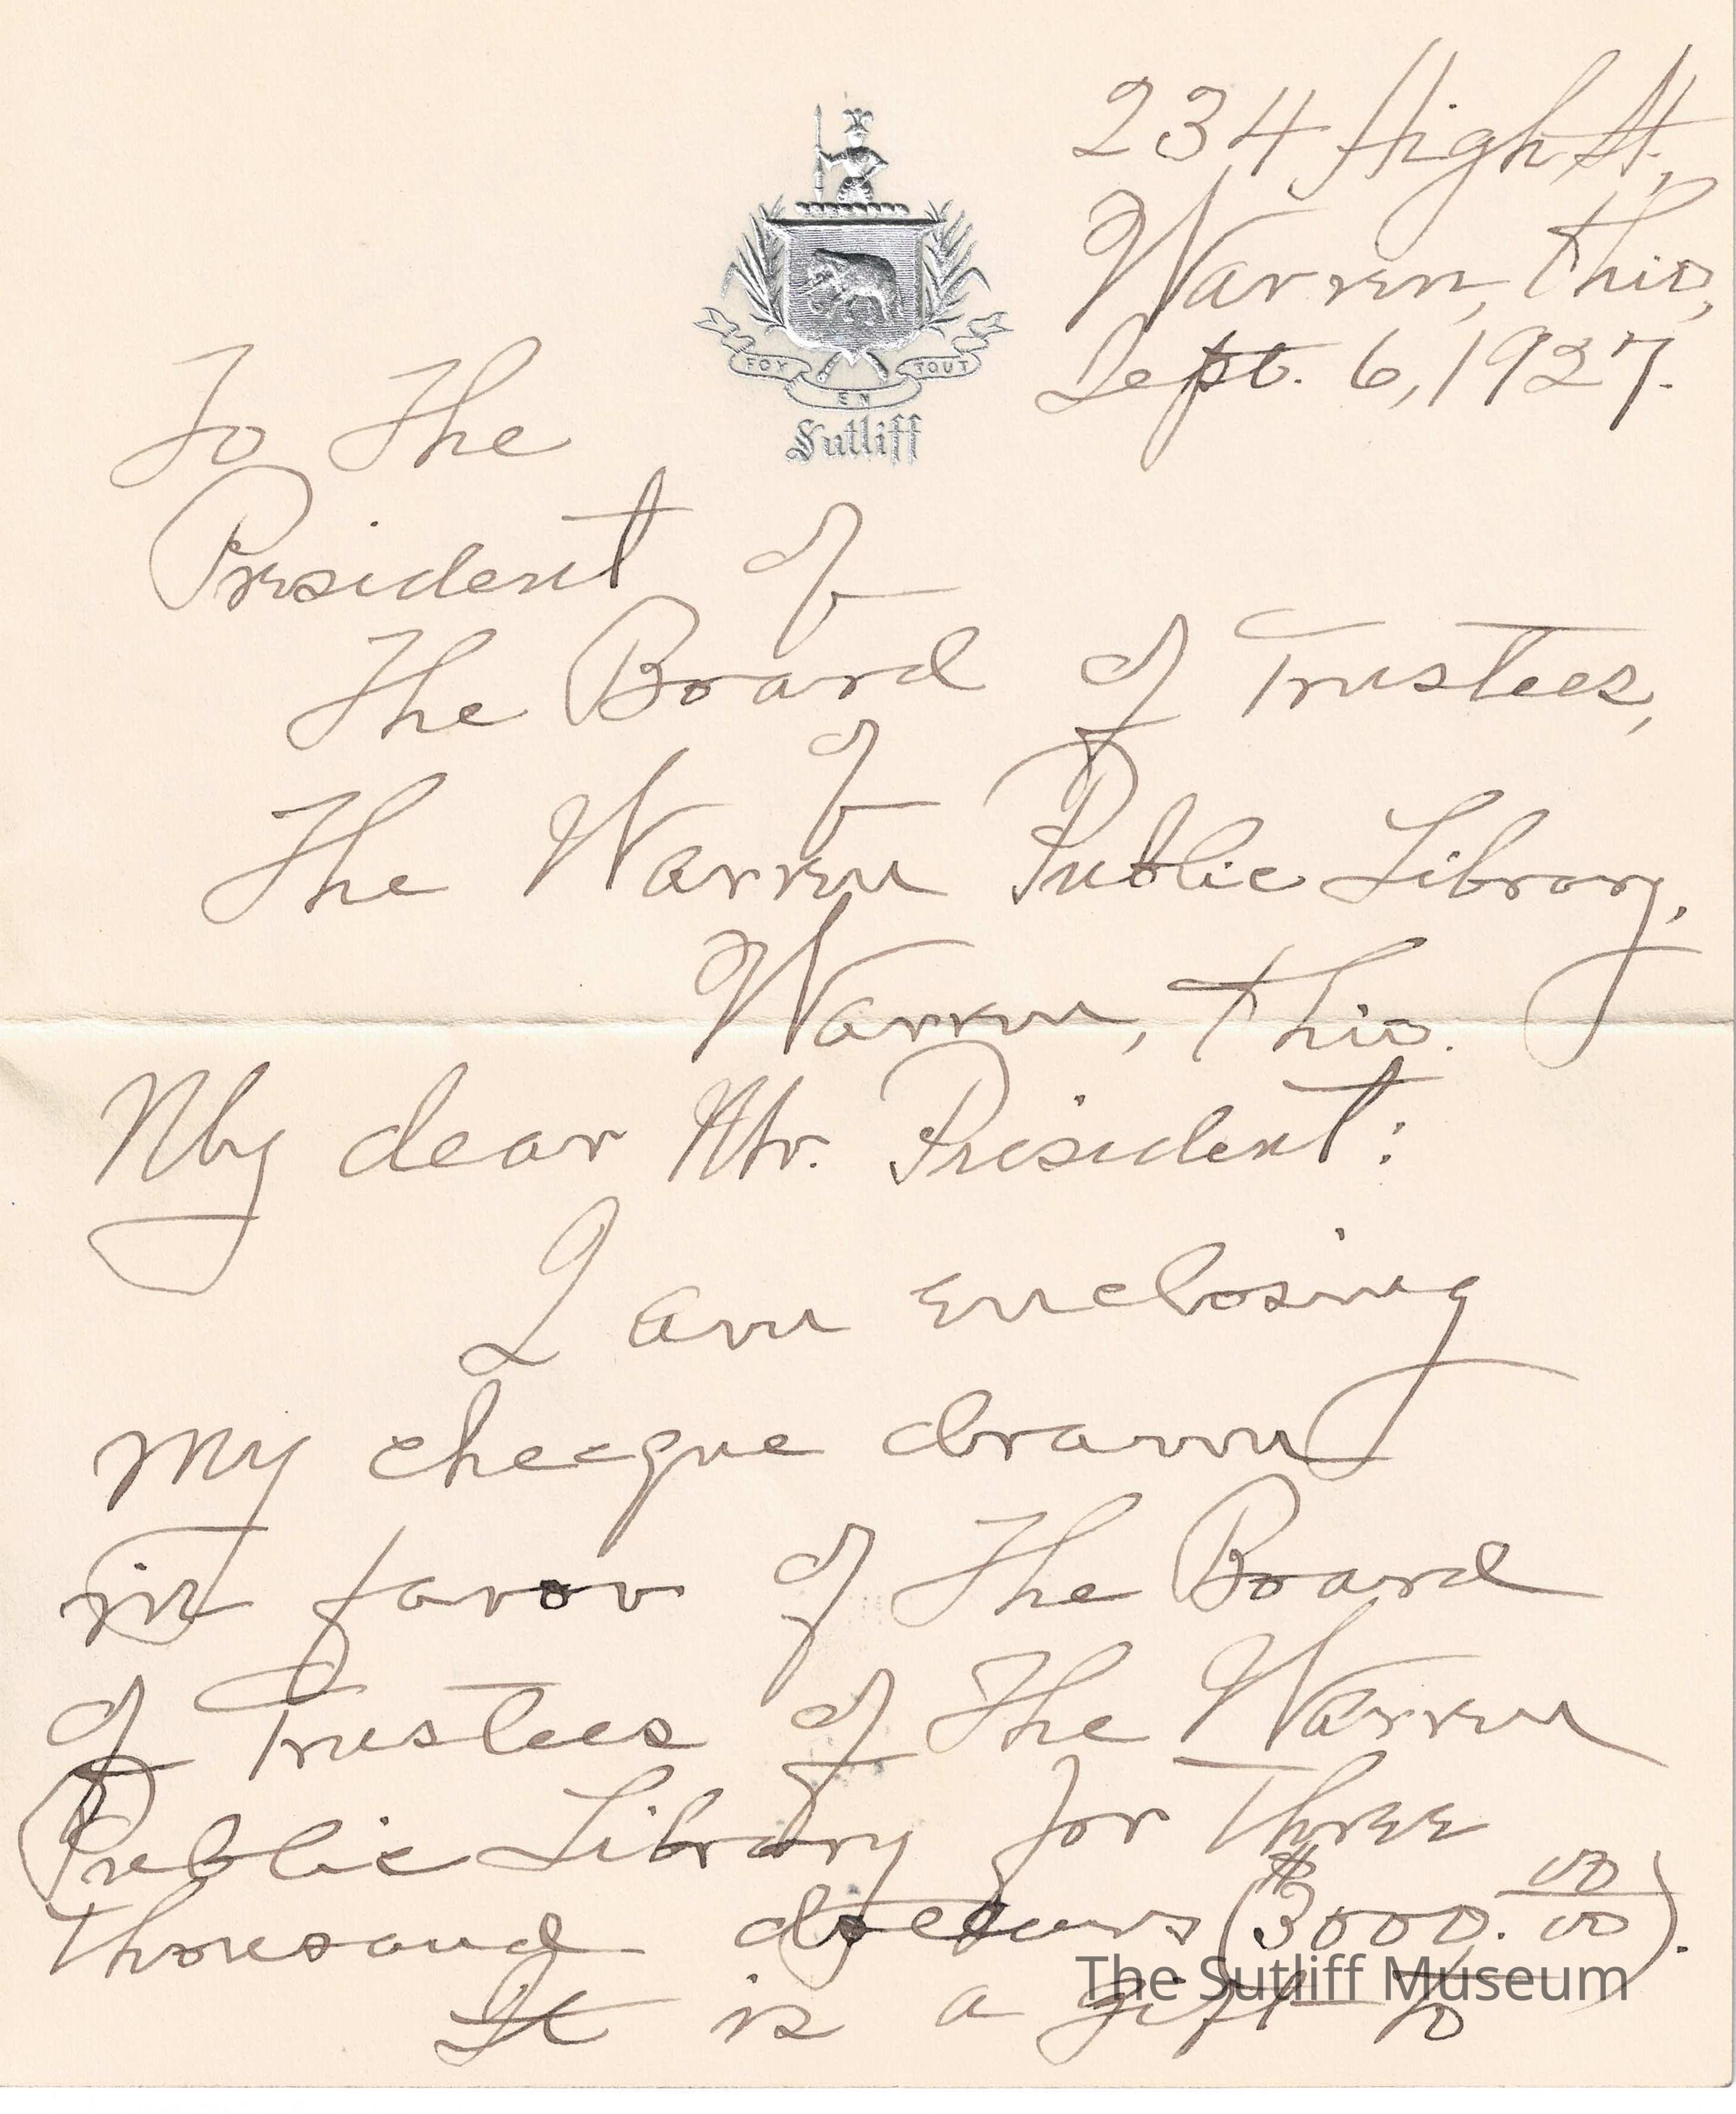 234 High St.,
Warren, Ohio,
Sept. 6, 1927.
FOY EN TOUT
Sutliff
To The
President of
The Board of Trustees,
of
The Warren Public Library,
Warren, Ohio.
My dear Mr. President:
I am enclosing
my checque drawn
in favor of The Board
of Trustees of The Warren
Public Library for Three
Thousand dollars ($3000.00/00).
It is a gift to
The Sutliff Museum